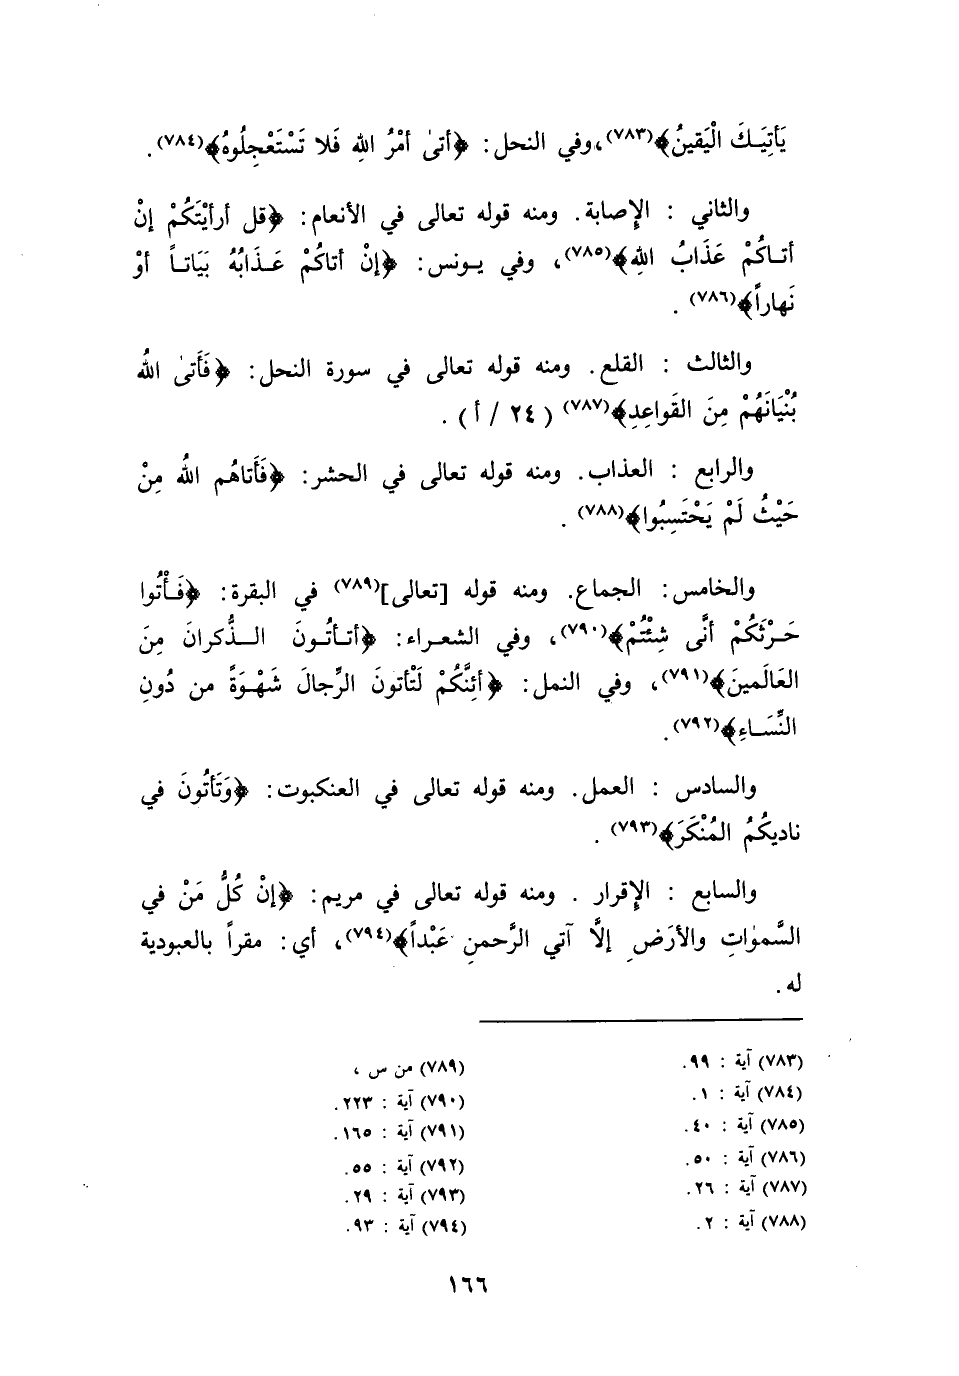 يَأتِيَـكَ الْيَقينُ﴾(٧٨٣)،وفي النحل: ﴿أتىٰ أمْرُ اللهِ فَلا تَسْتَعْجِلُوهُ﴾(٧٨٤).
والثاني : الإِصابة. ومنه قوله تعالى في الأنعام: ﴿قل أرأيْتَكُمْ إنْ
أتـاكُمْ عَذَابُ اللهِ﴾(٧٨٥)، وفي يـونس: ﴿إنْ أتاكُمْ عَـذَابُهُ بَيَاتـاً أوْ
نَهاراً﴾(٧٨٦) .
والثالث : القلع. ومنه قوله تعالى في سورة النحل: ﴿فَأَتىٰ اللهُ
بُنْيَانَهُمْ مِنَ القَواعِدِ﴾(٧٨٧) ( ٢٤ / أ ) .
والرابع : العذاب. ومنه قوله تعالى في الحشر: ﴿فَأَتاهُم اللهُ مِنْ
حَيْثُ لَمْ يَحْتَسِبُوا﴾(٧٨٨) .
والخامس: الجماع. ومنه قوله [تعالى](٧٨٩) في البقرة: ﴿فَـأْتُوا
حَـرْثَكُمْ أنَّى شِئْتُمْ﴾(٧٩٠)، وفي الشعـراء: ﴿أتـأتُـونَ الـذُّكرانَ مِنَ
العَالَمينَ﴾(٧٩١)، وفي النمل: ﴿أئِنَّكُمْ لَتْأتونَ الرِّجالَ شَهْـوَةً من دُونِ
النِّسَـاءِ﴾(٧٩٢).
والسادس : العمل. ومنه قوله تعالى في العنكبوت: ﴿وَتَأتُونَ في
ناديكُمُ المُنْكَرَ﴾(٧٩٣) .
والسابع : الإِقرار . ومنه قوله تعالى في مريم: ﴿إنْ كُلُّ مَنْ في
السَّمٰواتِ والأرَضِ إلاَّ آتي الرَّحمنِ عَبْداً﴾(٧٩٤)، أي: مقراً بالعبودية
له .
(٧٨٣) آية : ٩٩.
(٧٨٤) آية : ١.
(٧٨٥) آية : ٤٠.
(٧٨٦) آية : ٥٠.
(٧٨٧) آية : ٢٦.
(٧٨٨) آية : ٢.
(٧٨٩) من س ،
(٧٩٠) آية : ٢٢٣.
(٧٩١) آية : ١٦٥.
(٧٩٢) آية : ٥٥.
(٧٩٣) آية : ٢٩.
(٧٩٤) آية : ٩٣.
١٦٦